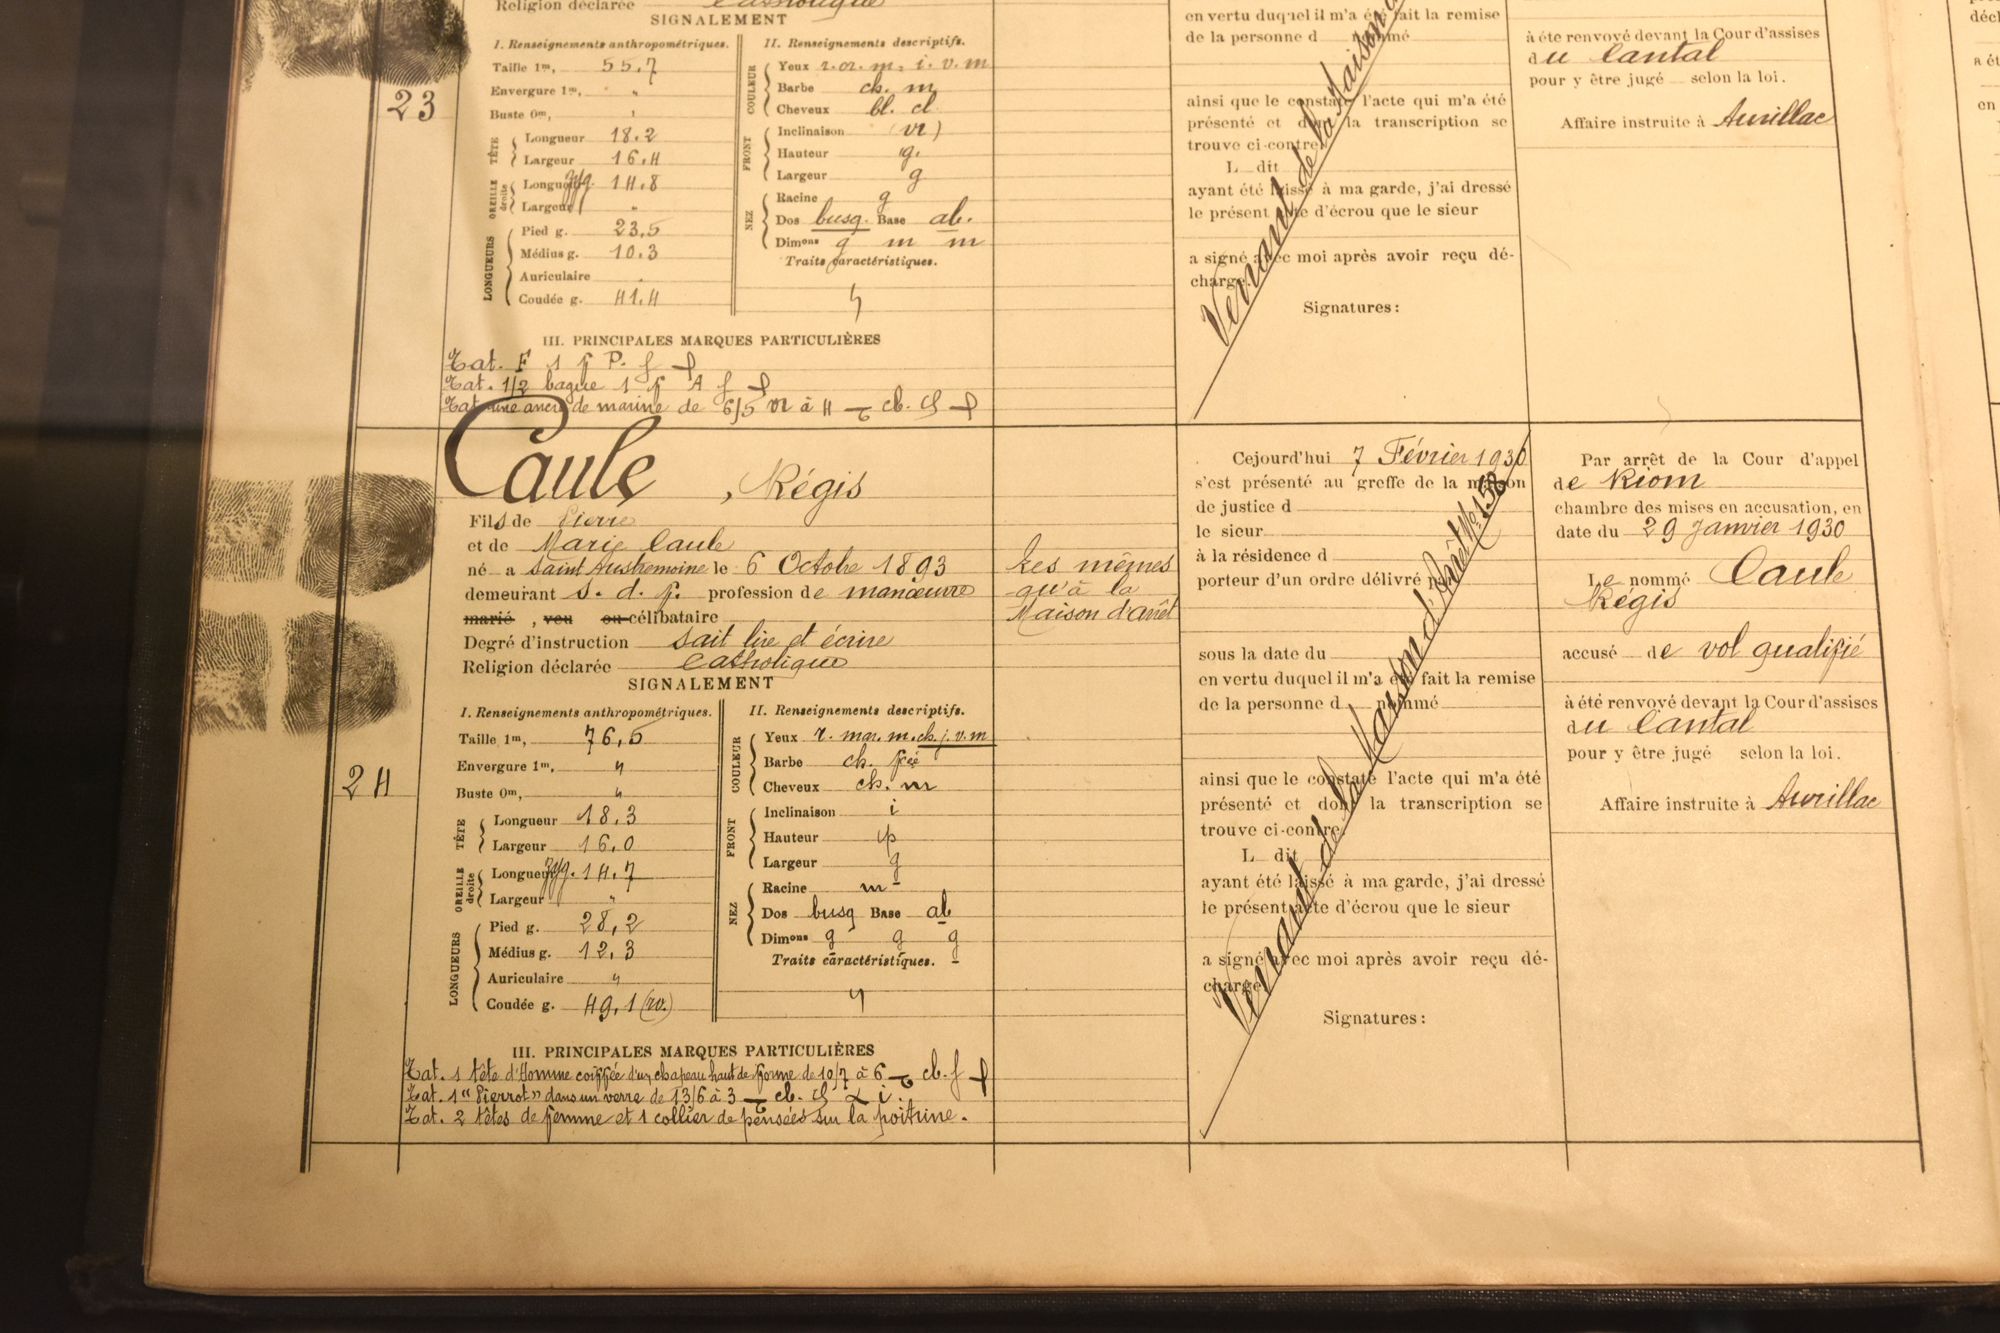 Religion déclarée Catholique
SIGNALEMENT
I. Renseignements anthropométriques.
Taille 1m, 55,7
Envergure 1m, "
Buste 0m,
TÊTE
Longueur 18.2
Largeur 16.4
OREILLE droite
Longueur zyg. 14.8
Largeur "
LONGUEURS
Pied g. 23,5
Médius g. 10.3
Auriculaire
Coudée g. 41.4
II. Renseignements descriptifs.
COULEUR
Yeux r. or. m, i. v. m
Barbe ch. m
Cheveux bl. cl
FRONT
Inclinaison (vr)
Hauteur g.
Largeur g
NEZ
Racine g
Dos busq. Base ab.
Dimons g m m
Traits caractéristiques.
III. PRINCIPALES MARQUES PARTICULIÈRES
Tat. F 1 P.
Tat. 1/2 bague 1 A
Tat. une ancre de marine de 6/5 à 4 cb.
23
en vertu duquel il m'a été fait la remise
de la personne d nommé
ainsi que le constate l'acte qui m'a été
présenté et dont la transcription se
trouve ci-contre.
L dit
ayant été laissé à ma garde, j'ai dressé
le présent acte d'écrou que le sieur
a signé avec moi après avoir reçu dé-
charge.
Signatures :
Venant de la Maison
à été renvoyé devant la Cour d'assises
du Cantal
pour y être jugé selon la loi.
Affaire instruite à Aurillac
24
Caule, Régis
Fils de Pierre
et de Marie Caule
né à Saint Austremoine le 6 Octobre 1893
demeurant s. d. f. profession de manœuvre
marié, veu ou célibataire
Degré d'instruction sait lire et écrire
Religion déclarée Catholique
SIGNALEMENT
I. Renseignements anthropométriques.
Taille 1m, 76,5
Envergure 1m, "
Buste 0m, "
TÊTE
Longueur 18.3
Largeur 16.0
OREILLE droite
Longueur zyg. 14,7
Largeur "
LONGUEURS
Pied g. 28,2
Médius g. 12.3
Auriculaire "
Coudée g. 49,1 (ro.)
II. Renseignements descriptifs.
COULEUR
Yeux r. mar. m. ch. j. v. m
Barbe ch.
Cheveux ch. m
FRONT
Inclinaison i
Hauteur p
Largeur g
NEZ
Racine m
Dos busq Base ab
Dimons g g g
Traits caractéristiques.
III. PRINCIPALES MARQUES PARTICULIÈRES
Tat. 1 tête d'Homme coiffée d'un chapeau haut de forme de 10/7 à 6 cb. f
Tat. 1 "Pierrot" dans un verre de 13/6 à 3 cb. i.
Tat. 2 têtes de femme et 1 collier de pensées sur la poitrine.
Les mêmes
qu'à la
Maison d'arrêt
Cejourd'hui 7 Février 1930
s'est présenté au greffe de la maison
de justice d
le sieur
à la résidence d
porteur d'un ordre délivré
sous la date du
en vertu duquel il m'a été fait la remise
de la personne d nommé
ainsi que le constate l'acte qui m'a été
présenté et dont la transcription se
trouve ci-contre.
L dit
ayant été laissé à ma garde, j'ai dressé
le présent acte d'écrou que le sieur
a signé avec moi après avoir reçu dé-
charge.
Signatures :
Venant de la Maison d'Arrêt No 158
Par arrêt de la Cour d'appel
de Riom
chambre des mises en accusation, en
date du 29 Janvier 1930
Le nommé Caule
Régis
accusé de vol qualifié
à été renvoyé devant la Cour d'assises
du Cantal
pour y être jugé selon la loi.
Affaire instruite à Aurillac